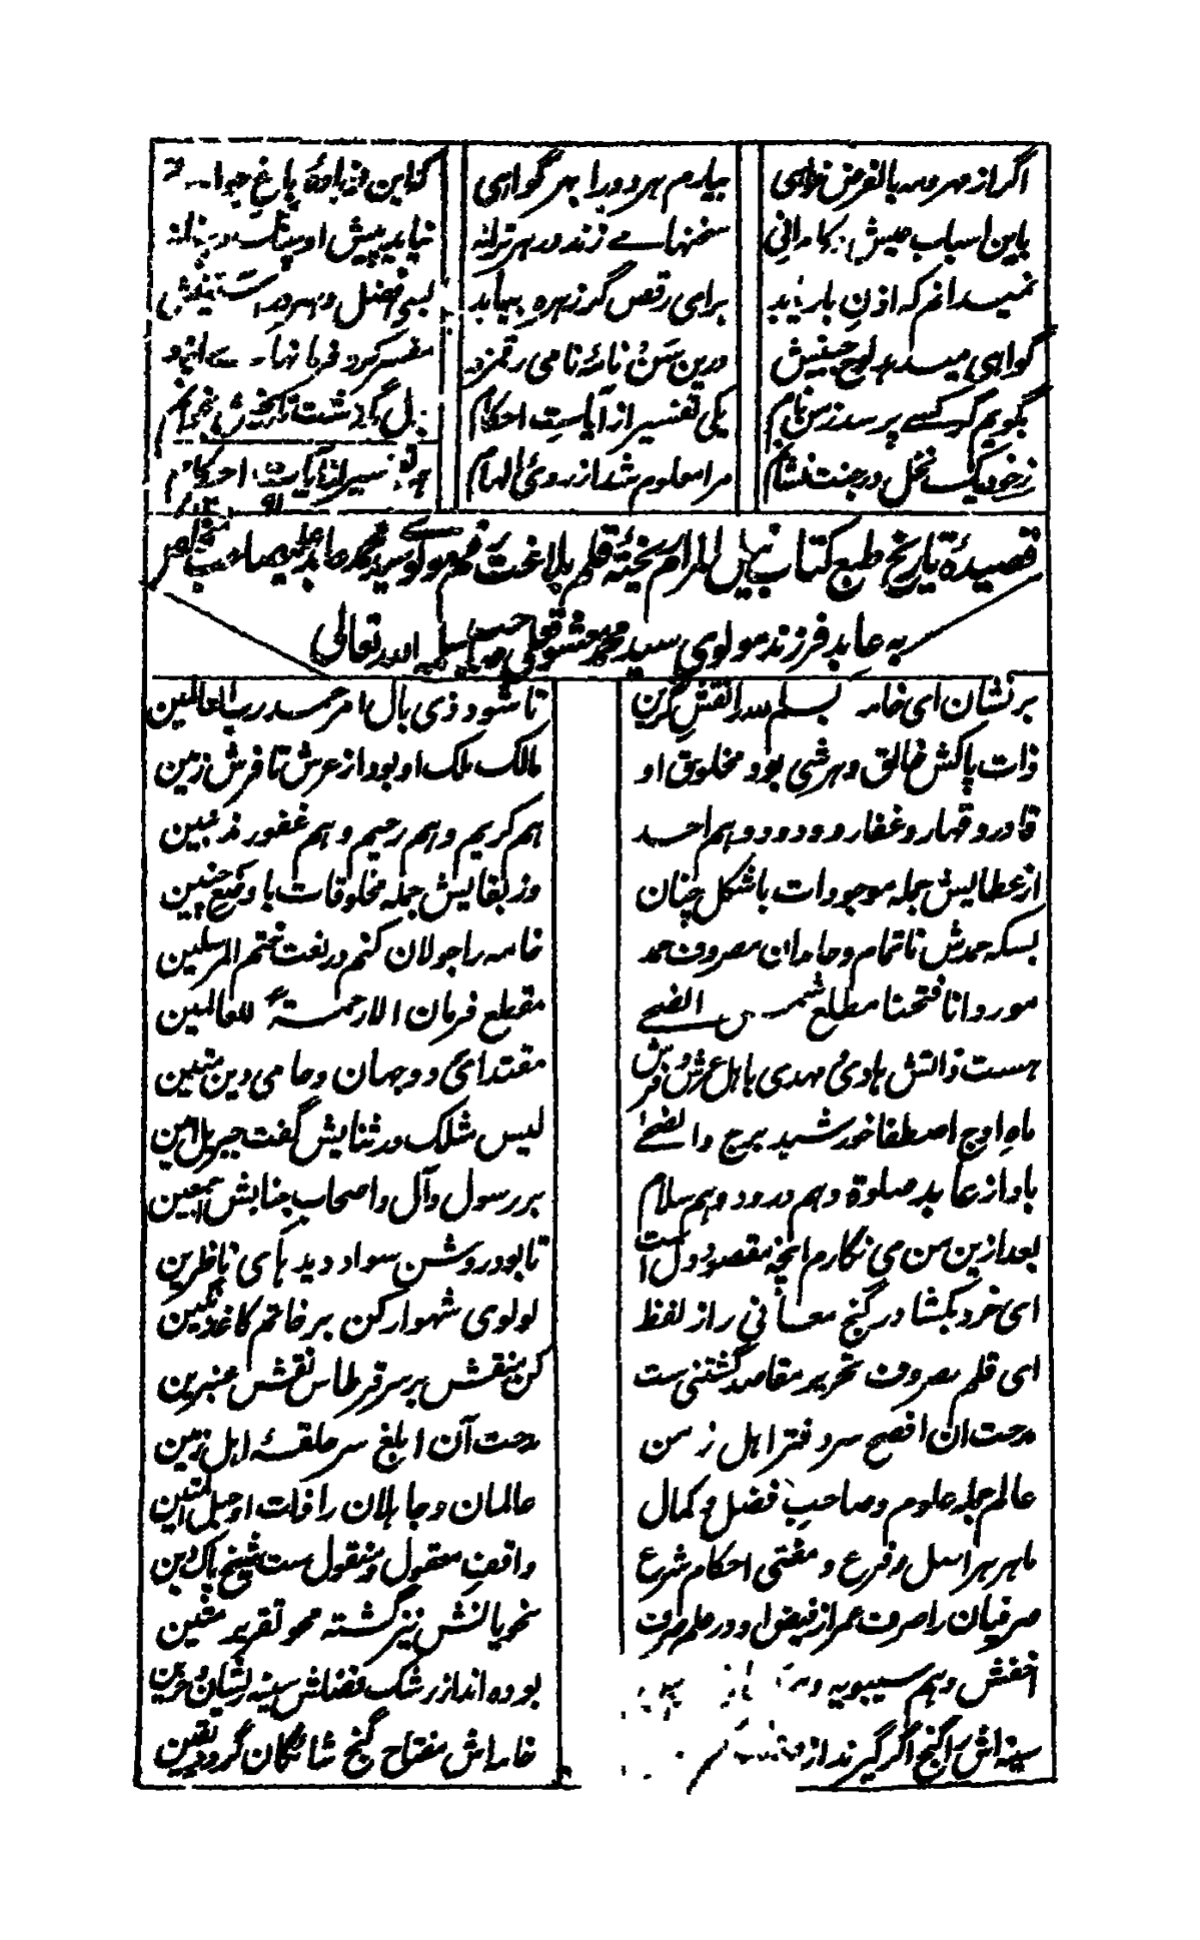 اگر از مهر و مه بالفرض خواهی بیارم هر دو را بهر گواهی کزاین باغ
باین اسباب عیش کامرانی سخنها می زند در هر ترانه نیاید پیش او
نمیدانم که اذن بار یابد برای رقص گر زهره بیاید بسی فضل و هنر در
گواهی میدهد لوح جبینش درین سن نامهٔ نامی رقم زد مفسر کرد
بگویم گر کسے پرسد زمن نام یکی تفسیر از آیاست احکام
زخود یک نخل در جنت نشانم مرا معلوم شد از روئ الهام تفسیر آیات احکام
قصیدهٔ تاریخ طبع کتاب نیل المرام ریختهٔ قلم بلاغت رقم مولوی سید محمد عابد صاحب متخلص
به عابد فرزند مولوی سید محمد معشوق علی صاحب سلمه الله تعالی
بر نشان ای خامه بسم الله را نقش نگین تا شود ذی بال امر حمد رب العالمین
ذات پاکش خالق و هر شی بود مخلوق او مالک ملک او بود از عرش تا فرش زمین
قادر و قهار و غفار و ودود و هم احد هم کریم و هم رحیم و هم غفور مذنبین
از عطایش جمله موجودات باشکل چنان وز بقایش جمله مخلوقات با وضع چنین
بسکه حمدش ناتمام و حامدان مصروف حمد خامه را جولان کنم در نعت ختم المرسلین
مورد انا فتحنا مطلع شمس الضحے مقطع فرمان الا رحمة للعالمین
هست ذاتش هادئ مهدی باهل عرش و فرش مقتدائ دو جهان و حامی دین متین
ماه اوج اصطفا خورشید برج والضحے لیس مثلک در ثنایش گفت جبریل امین
باد از عابد صلوة و هم درود و هم سلام بر رسول و آل و اصحاب جنابش اجمعین
بعد ازین من می نگارم انچه مقصود دل است تا بود روشن سواد دیدهای ناظرین
ای خرد بکشا در گنج معانی راز لفظ لولوی شهوار کن بر خاتم کاغذ نگین
ای قلم مصروف تحریر مقاصد گشتنی ست کن منقش بر سر قرطاس نقش عنبرین
مدحت ان افصح سر دفتر اهل زمن مدحت آن ابلغ سر حلقهٔ اهل زمین
عالم جمله علوم و صاحب فضل و کمال عالمان و جاهلان را ذات او حبل المتین
ماهر هر اصل و فرع و مفتی احکام شرع واقف معقول و منقول ست شیخ پاک دین
صرفیان را صرف عمر از فیض او در علم صرف نحویانش نیز گشته محو تقریر متین
اخفش و هم سیبویه بوده انداز رشک فضلش سینه ریشان و حزین
سینه اش را گنج اگر گیرند از خامه اش مفتاح گنج شائگان گردد یقین